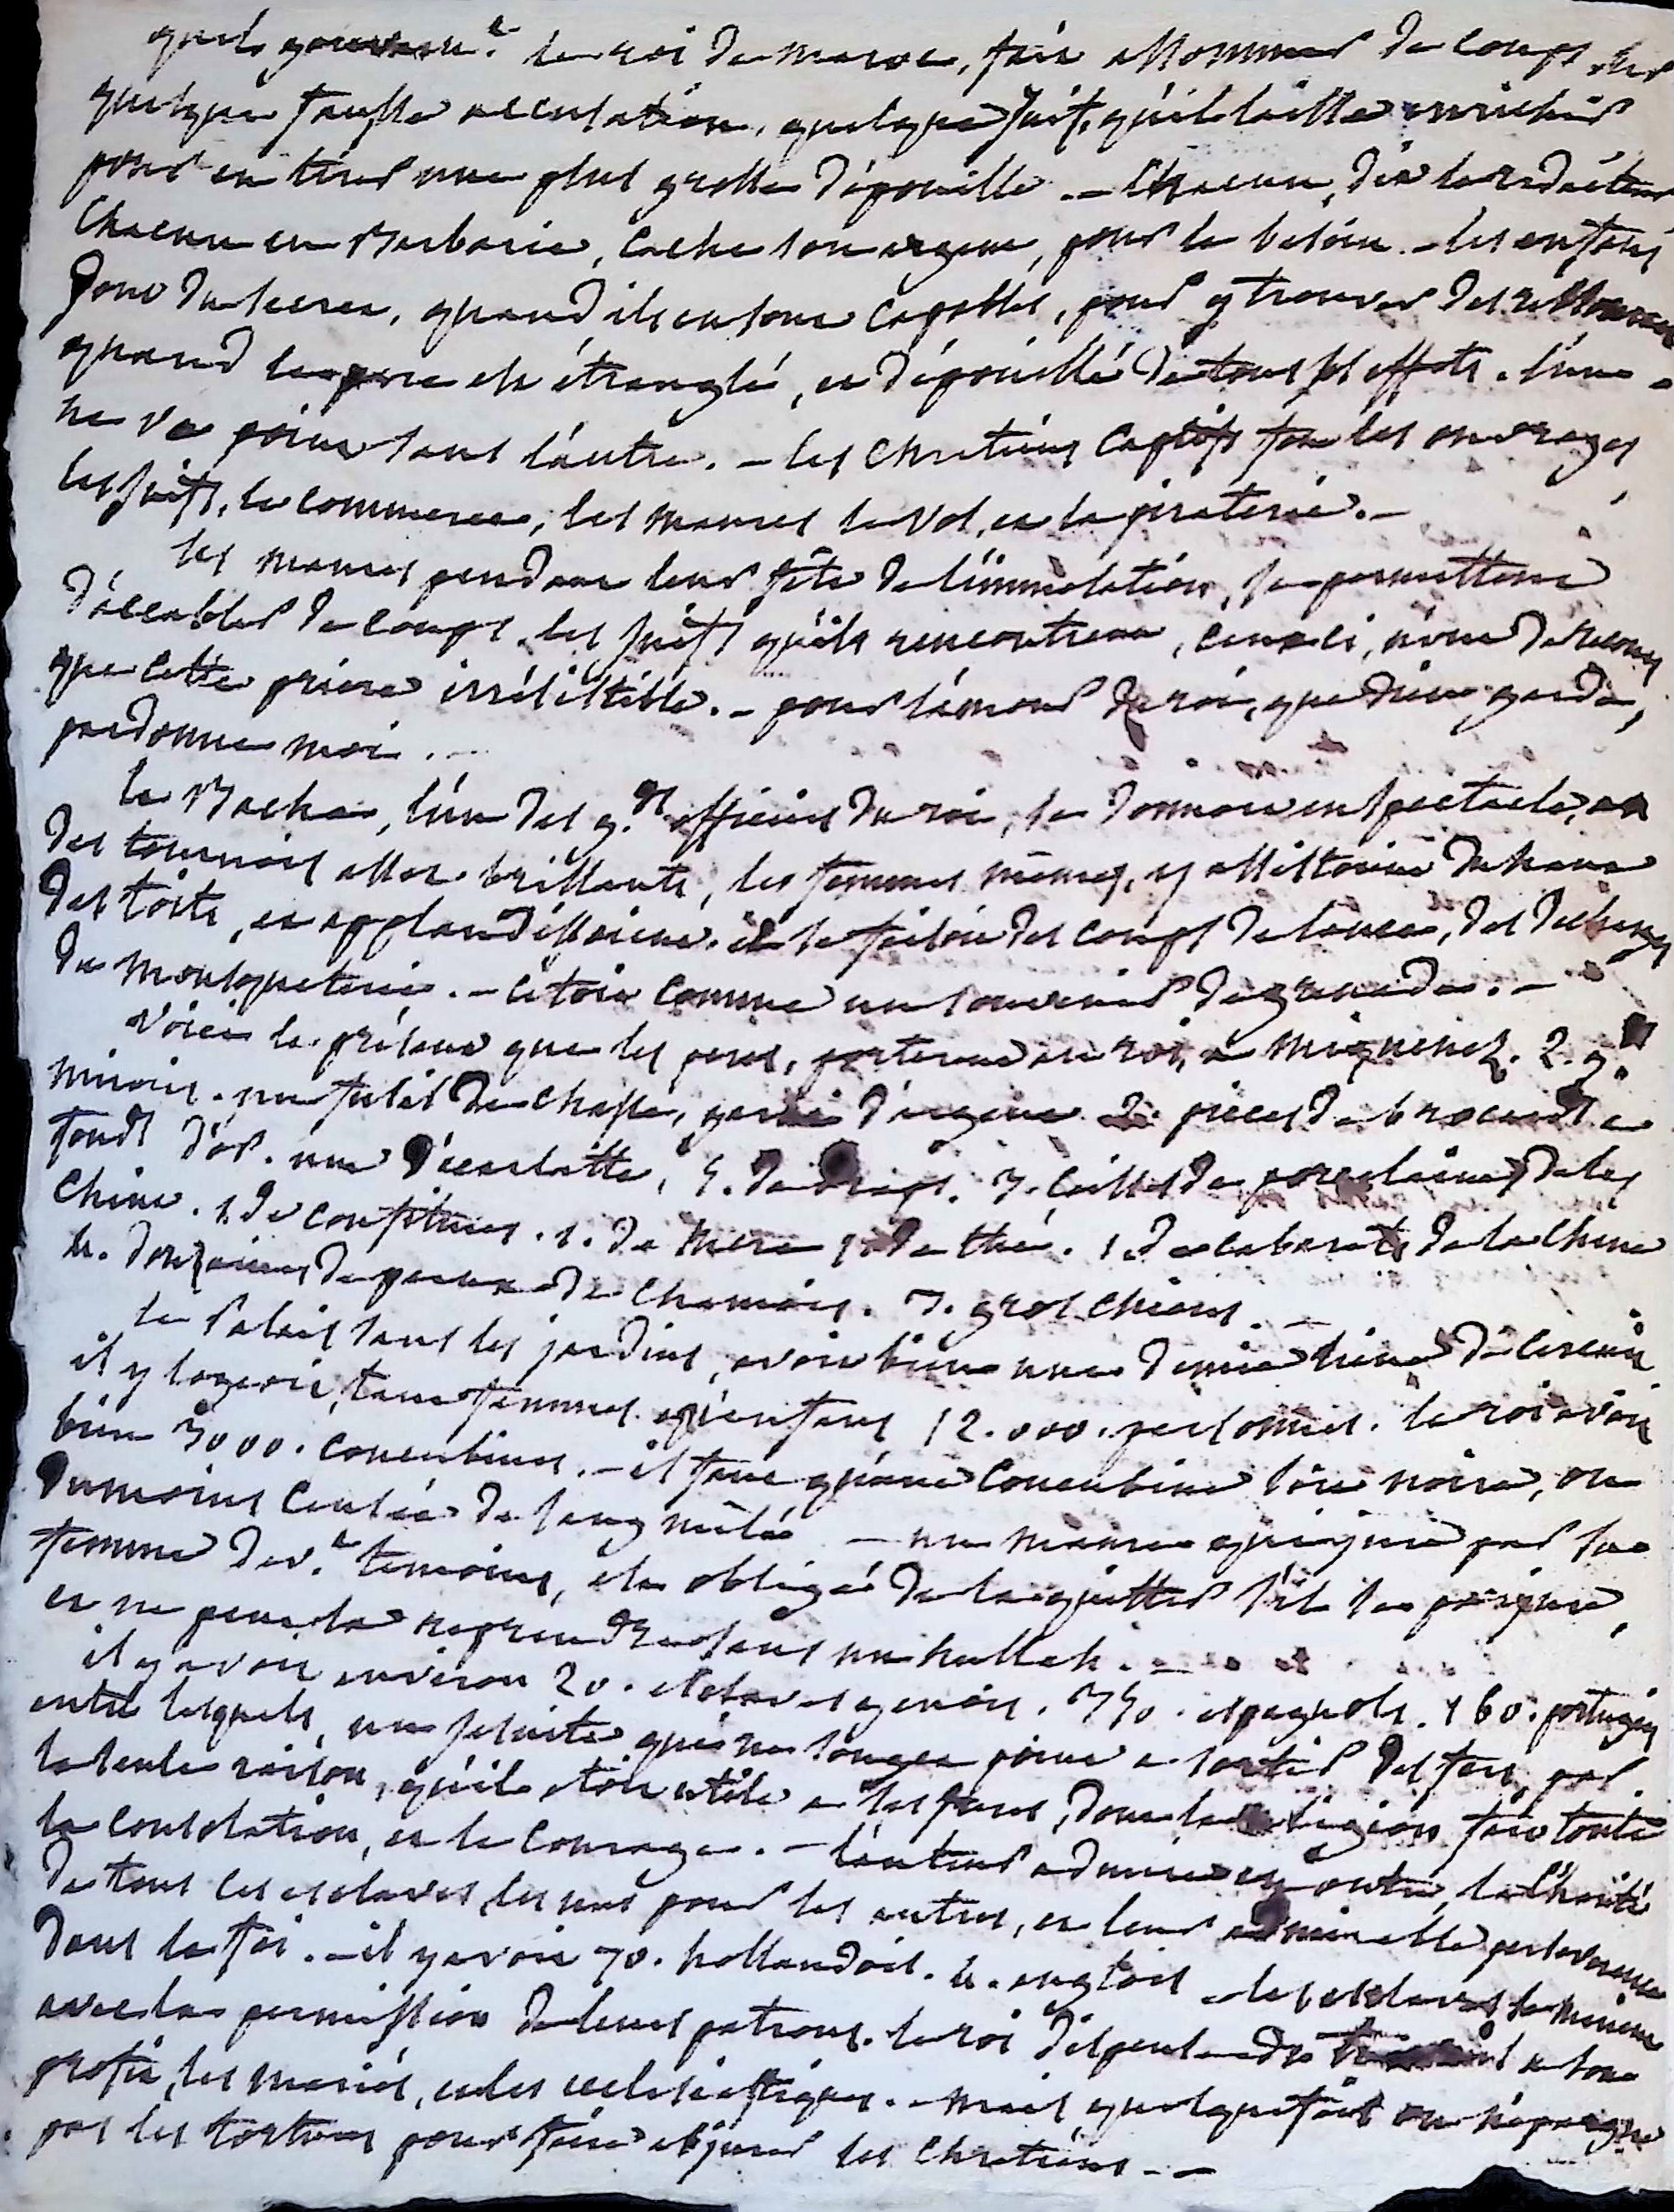 quels gouvern.t le roi de maroc, fait assommer de coups sur
quelque fausse accusation, quelque juif, qu'il laisse enrichir
pour en tirer une plus grosse dépouille. - chacun, dit le rédacteur
chacun en Barbarie, cache son argent, pour le besoin. - les enfans
sont du secret, quand ils en sont capables, pour y trouver des ressources
quand le pere est étranglé, et dépouillé de tous ses effets. l'un
ne va point sans l'autre. - les chretiens captifs font les ouvrages
les juifs, le commerce, les maures le vol, et la piraterie. -
les maures pendant leur fête de l'immolation, se permettent
d'accabler de coups, les juifs qu'ils rencontrent, ceux ci, n'ont de recours
que cette priere irrésistible. - pour l'amour du roi, que dieu garde,
pardonne moi. -
le Bacha, l'un des g.ds officiers du roi, se donnoit en spectacle, en
des tournois assez brillants, les femmes mêmes, y assistoient du haut
des toits, et applaudissoient. il se faisoit des coups de lance, des décharges
de mousqueterie. - c'etoit comme un souvenir de grenade. -
voici le présent que les peres, porterent au roi, a miquenez. 2. g.ds
miroirs. un fusil de chasse, garni d'argent. 2. pieces de brocard a
fonds d'or. une d'écarlatte, 5. de draps. 3. caisses de porcelaines de la
chine. 1. de confitures. 1. de 1. de thé. 1. de cabarets de la chine
douzaines de peaux de chamois. 3. gros chiens. -
le Palais sans les jardins, avoit bien une demie lieue de circuit
il y logeoit, tant femmes qu'enfans 12.000. personnes. le roi avoit
bien 3000. concubines. - il faut qu'une concubine soit noire, ou
du moins censée de sang mêlé - un maure qui jure par sa
femme dev.t temoins, est obligé de la quitter s'il se parjure,
et ne peut la reprendre sans un hullah. -
il y avoit environ 20. esclaves genois. 350. espagnols. 160. portugais
entre lesquels, un jesuite qui ne songea point a sortir des fers, par
la seule raison, qu'il etoit utile a ses freres, dont la religion fait toute
la consolation, et le courage. - l'auteur admire en outre, la charité
de tous ces esclaves les uns pour les autres, et leur admirable perséverance
dans la foi. - il y avoit 70. hollandois. anglois - les esclaves se marient
avec la permission de leurs patrons. le roi dispense de travail a son
profit, les mariés, et les ecclésiastiques. - mais quelquefois on n'épargne
pas les tortures pour faire abjurer les chretiens. -